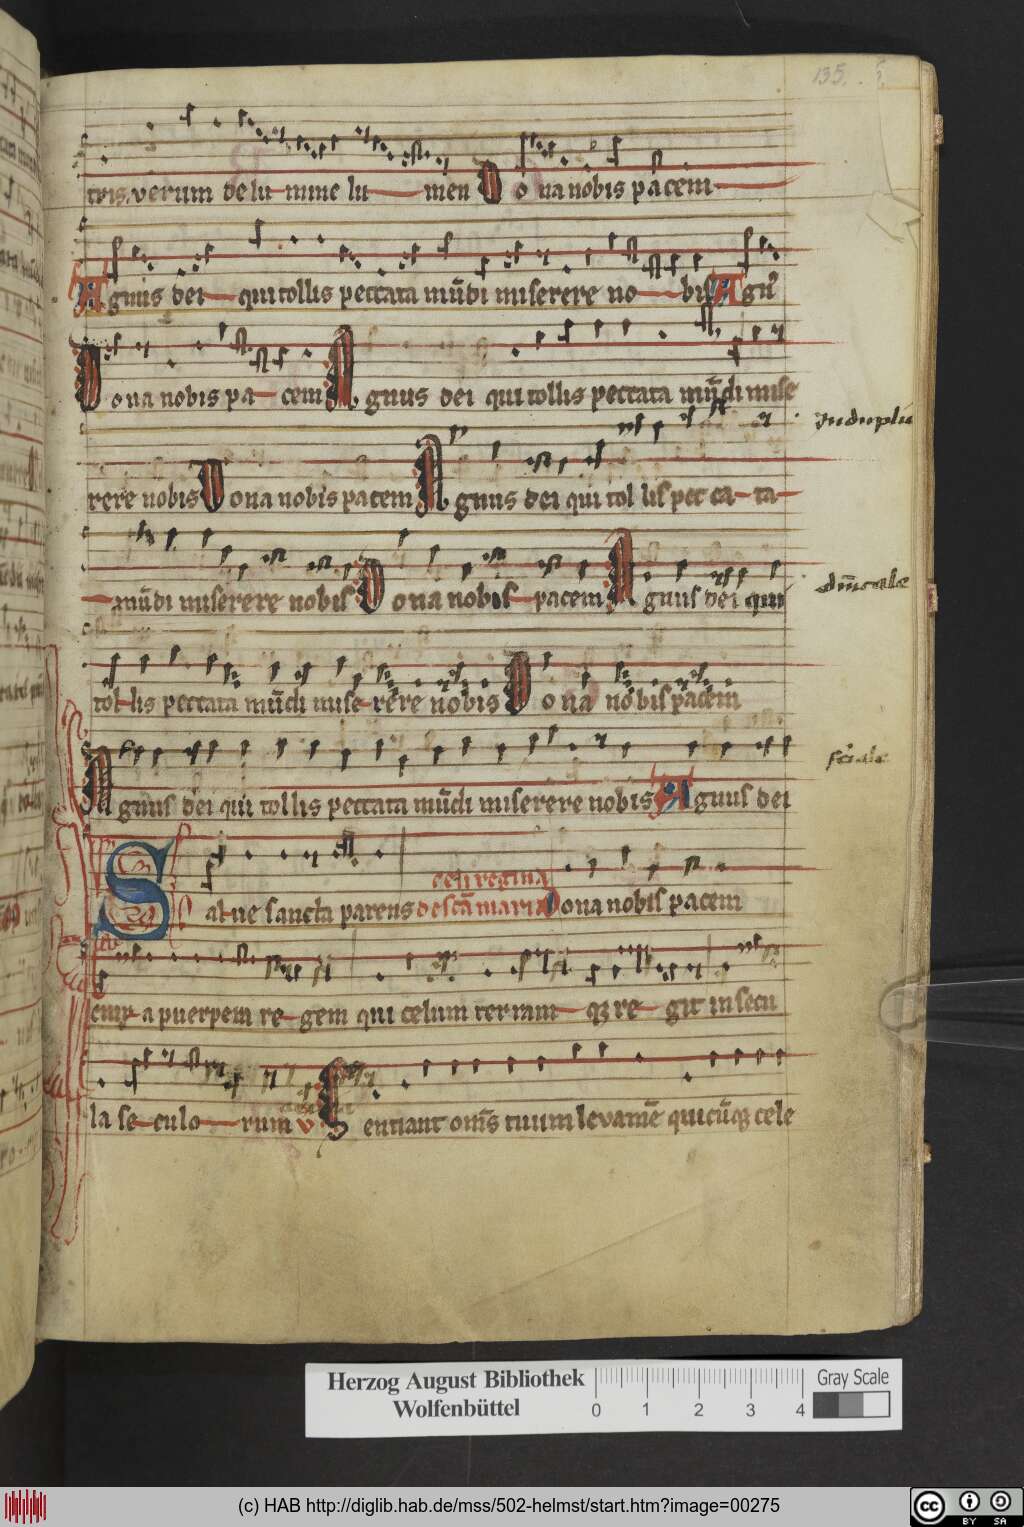 135.
tris, verum de lu mine lu men Dona nobis pacem
Agnus dei qui tollis peccata mūdi miserere no bis Agn᷒
Dona nobis pa cem Agnus dei qui tollis peccata mūdi mise
rere nobis Dona nobis pacem Agnus dei qui tol lis pec ca ta
mūdi miserere nobis Dona nobis pacem Agnus dei qui
tol lis peccata mūdi mise rere nobis Dona nobis pacem
Agnus dei qui tollis peccata mūdi miserere nobis Agnus dei
celi regina
Salue sancta parens de scā maria Dona nobis pacem
a puerpera re gem qui celum terram qꝫ re git in secu
la se culo rum v Sentiant om̄s tuum levamē quicūqꝫ cele
Herzog August Bibliothek
Wolfenbüttel
0 1 2 3 4
Gray Scale
(c) HAB http://diglib.hab.de/mss/502-helmst/start.htm?image=00275
cc BY SA